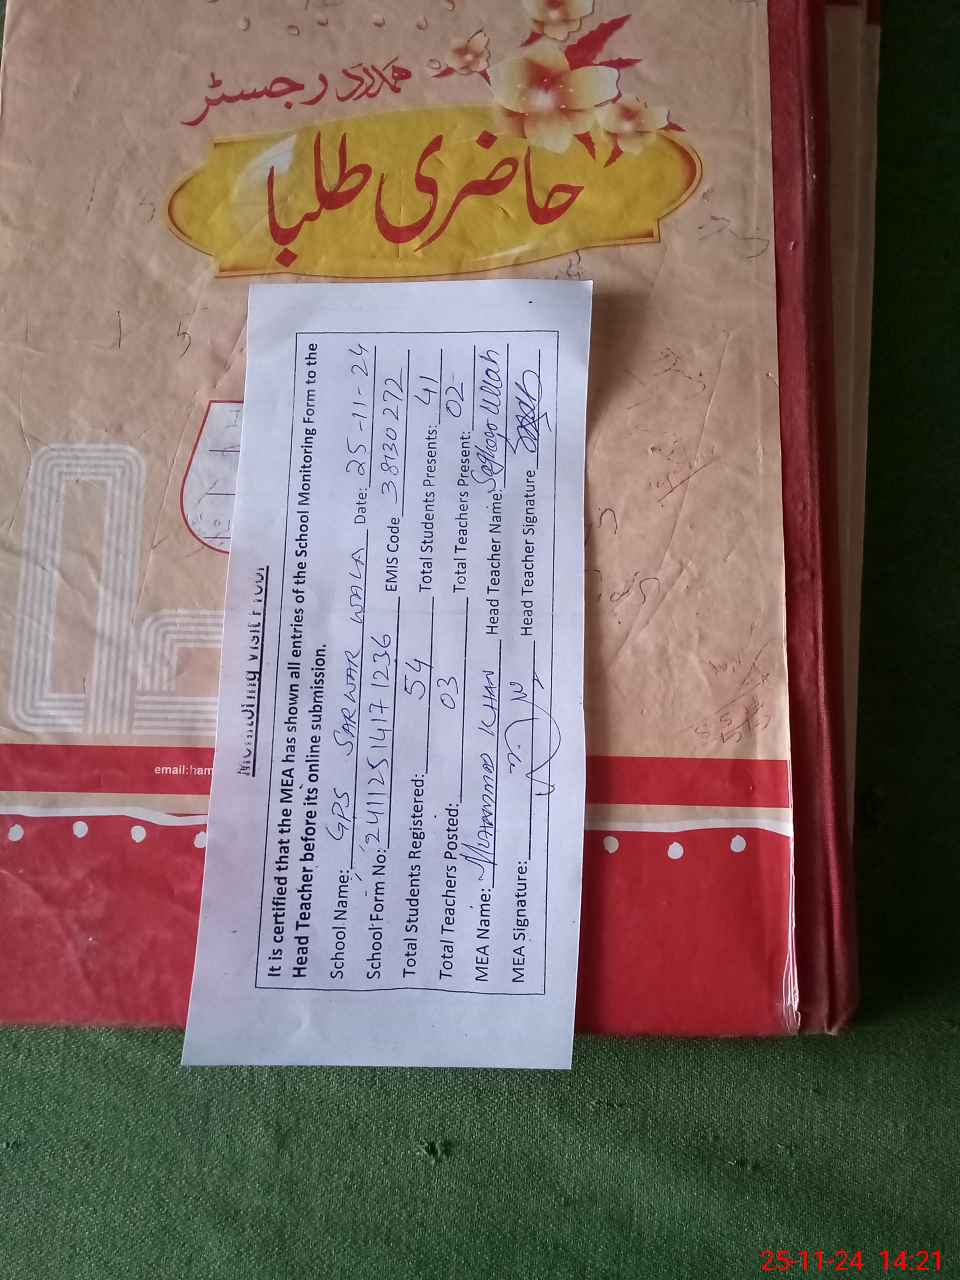 ہمدرد رجسٹر
حاضری طلبا
email:ham
Monitoring Visit Proof
It is certified that the MEA has shown all entries of the School Monitoring Form to the
Head Teacher before its online submission.
School Name: GPS SARWAR WALA Date: 25-11-24
School Form No: 24112514171236 EMIS Code 38130272
Total Students Registered: 54 Total Students Presents: 41
Total Teachers Posted: 03 Total Teachers Present: 02
MEA Name: MUHAMMAD KHAN Head Teacher Name: Ullah
MEA Signature: Head Teacher Signature
25-11-24 14:21